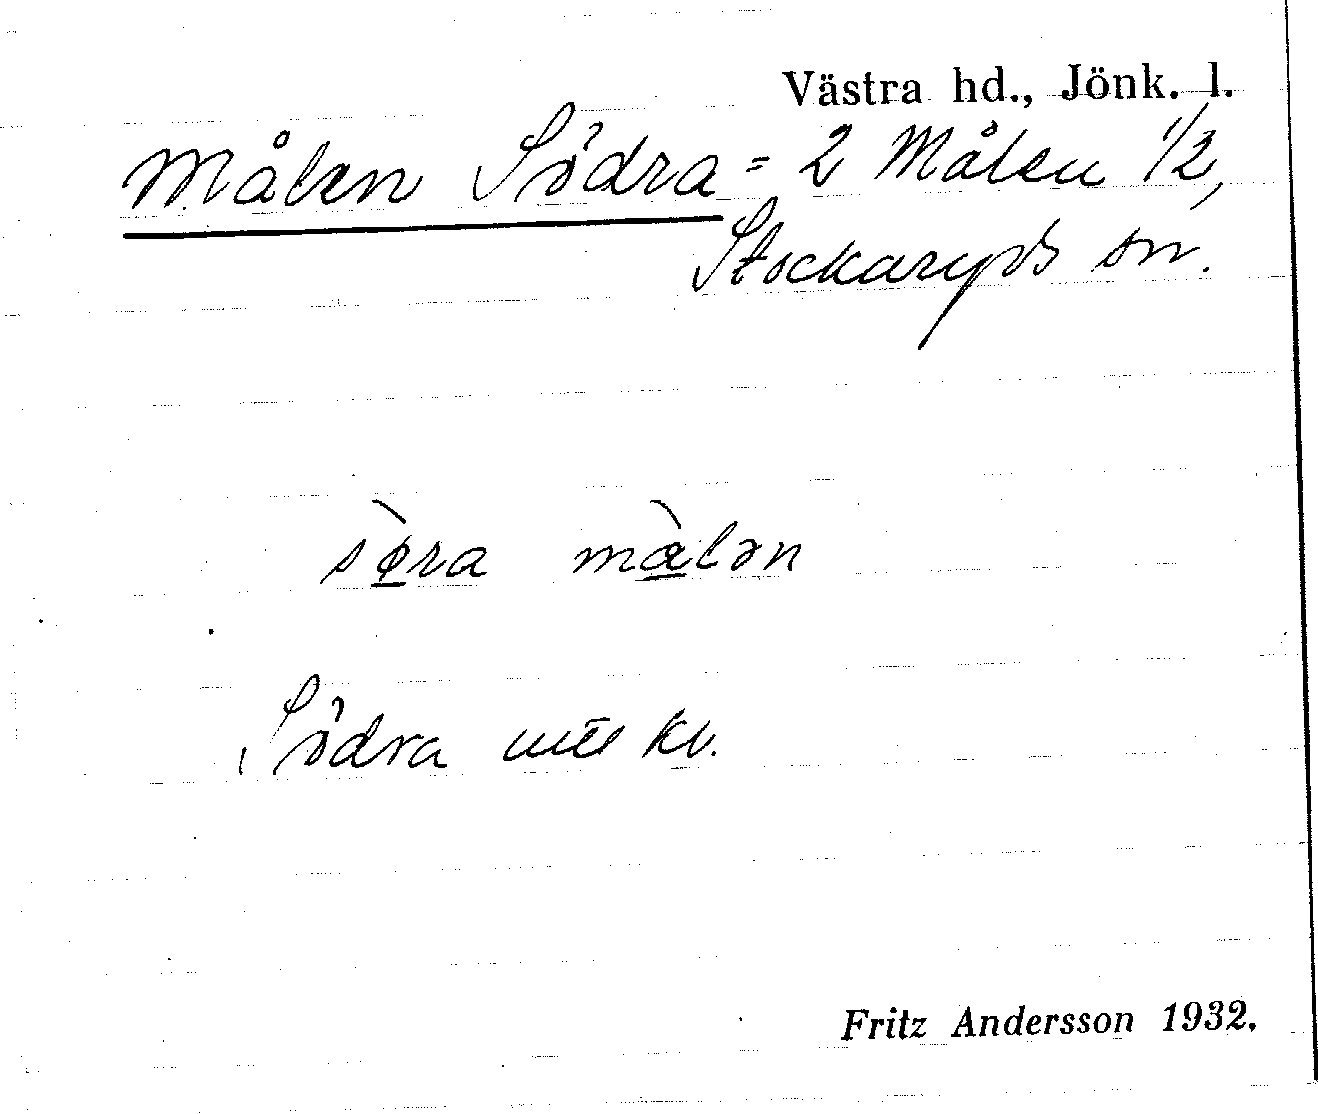 Västra hd., Jönk. l.
Målen Södra = 2 Målen 1/2,
Stockaryds sn.
sø̀ra màlən
Södra
Fritz Andersson 1932.